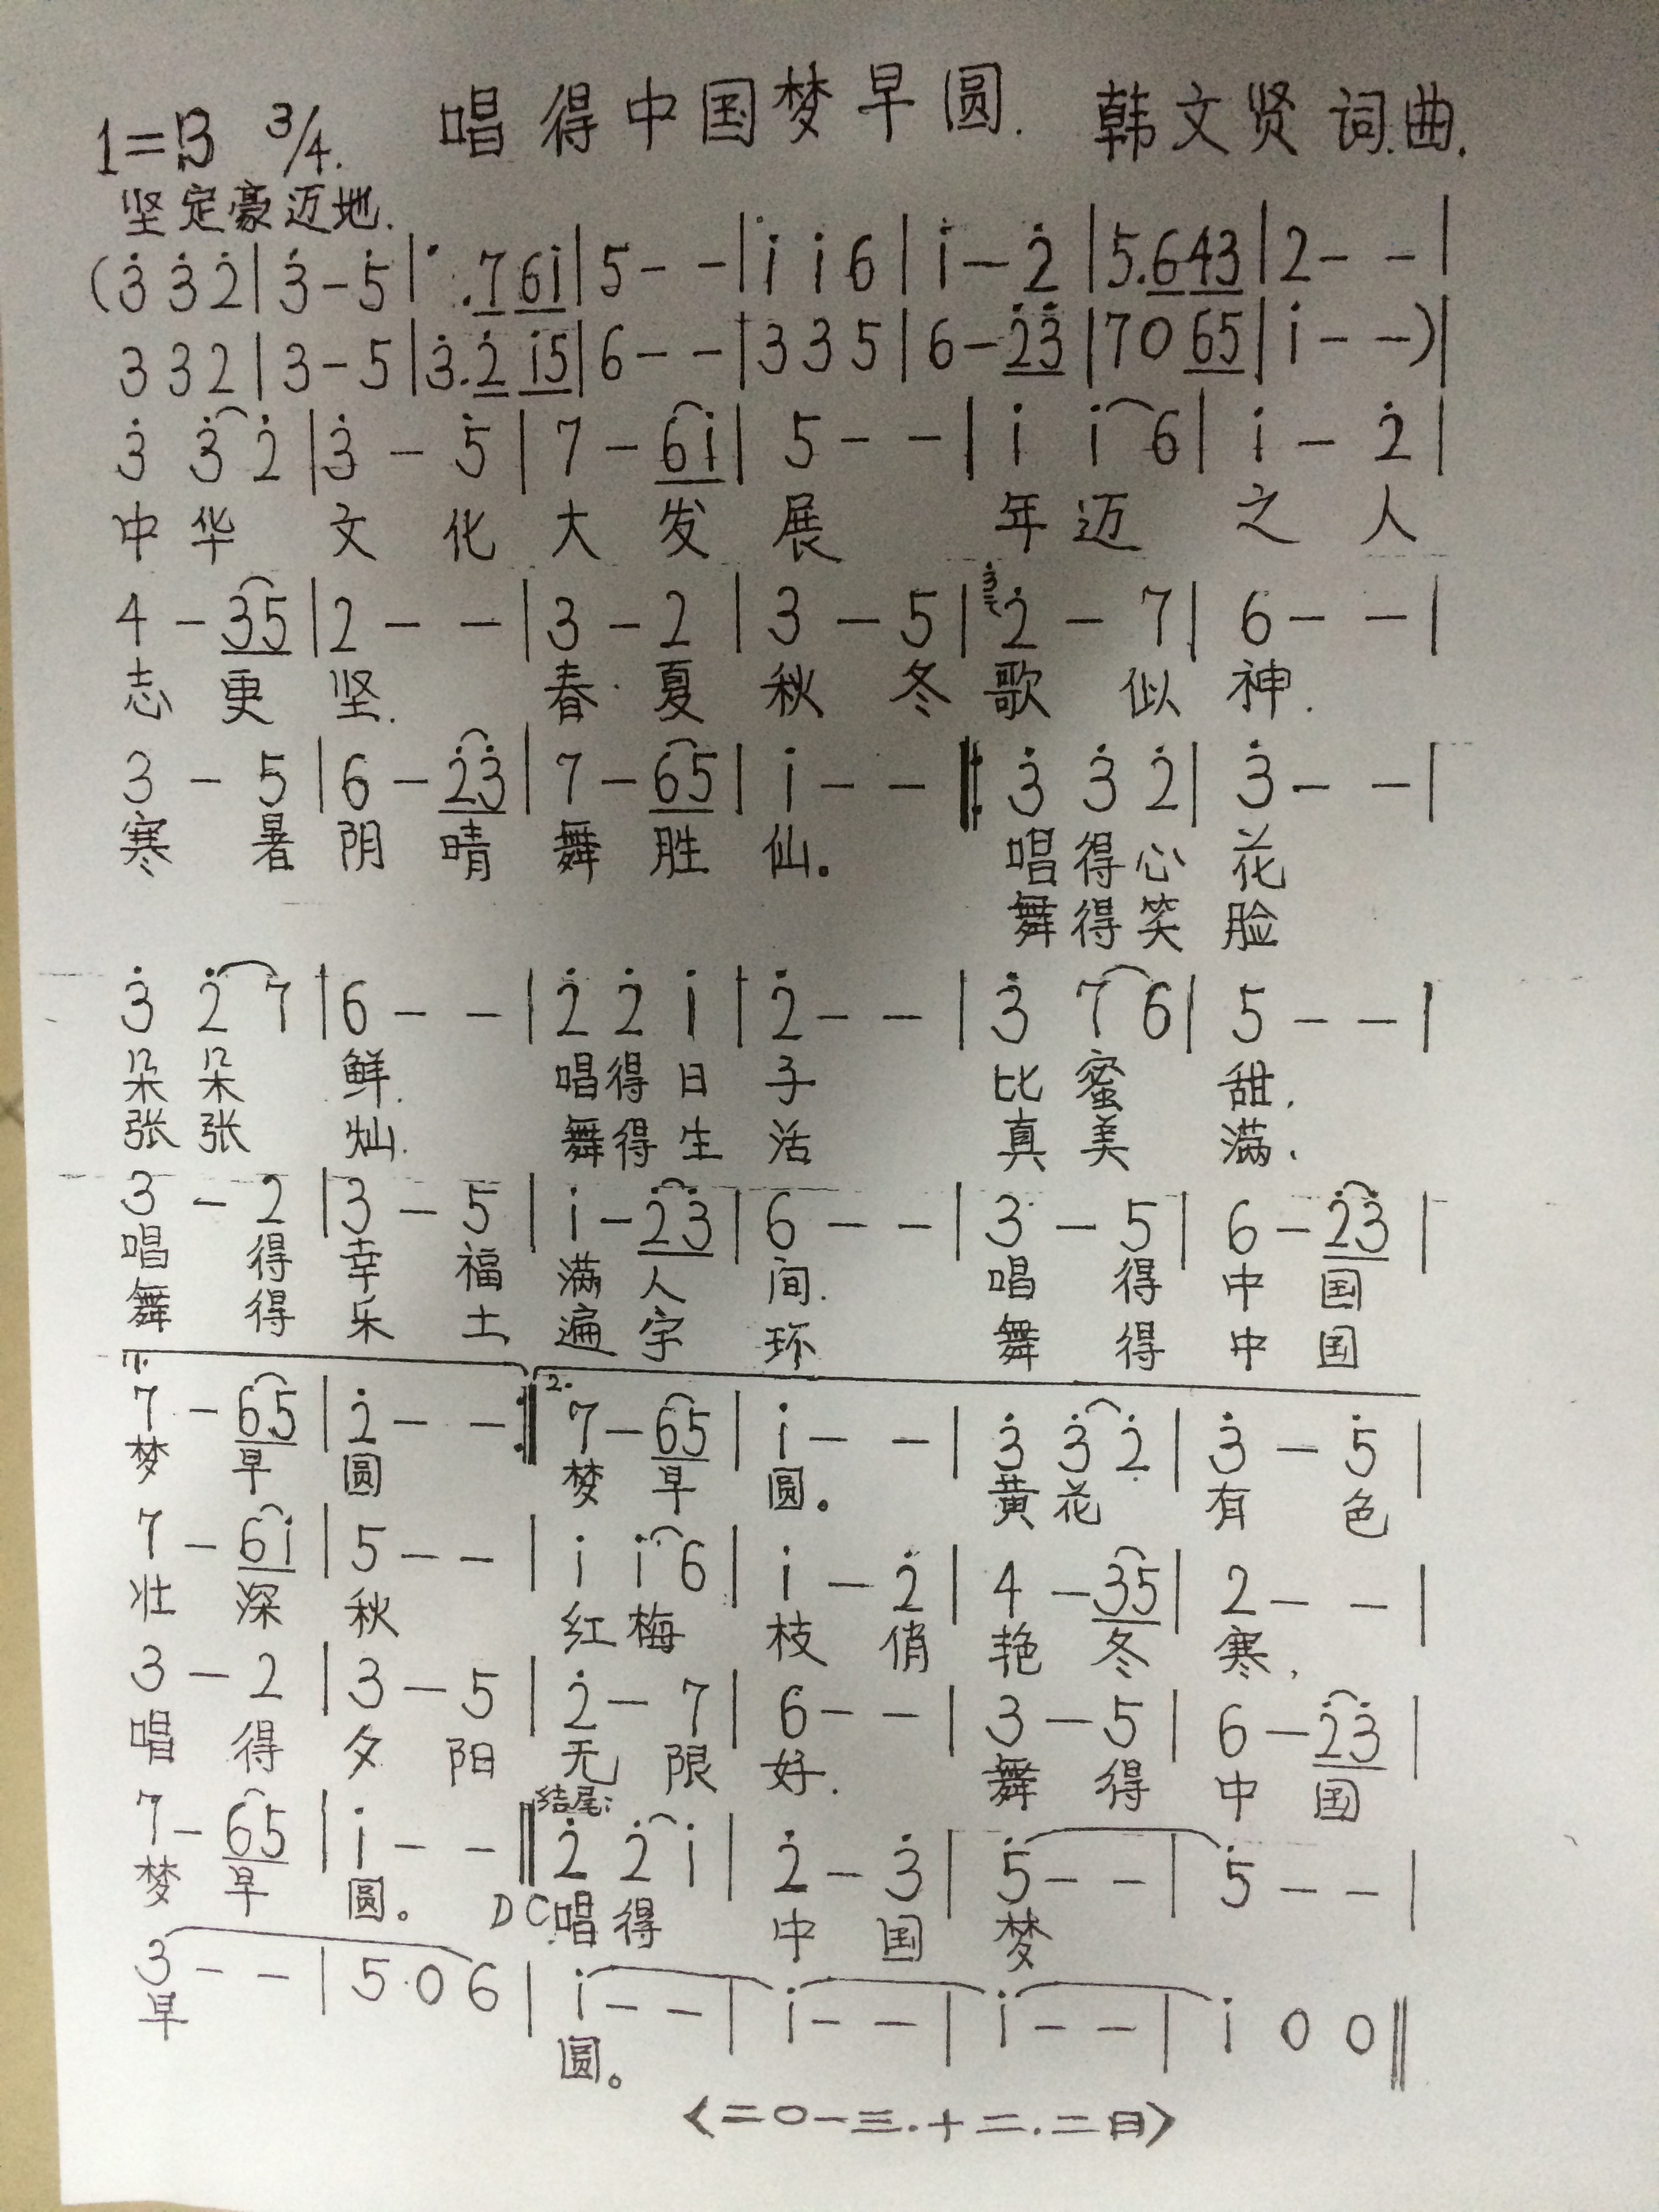 1=B 3/4. 唱得中国梦早圆. 韩文贤 词.曲.
坚定豪迈地.
(3̇ 3̇ 2̇ | 3̇ - 5̇ | . 7 6 i | 5 - - | i i 6 | i - 2̇ | 5. 6 4 3 | 2 - - |
3 3 2 | 3 - 5 | 3̇. 2̇ i 5 | 6 - - | 3 3 5 | 6 - 2̇ 3̇ | 7 0 6 5 | i - - ) |
3̇ 3̇ 2̇ | 3̇ - 5̇ | 7 - 6 i | 5 - - | i i 6 | i - 2̇ |
中华 文 化 大 发 展 年迈 之 人
4 - 3 5 | 2 - - | 3 - 2 | 3 - 5 | 3̇ 2̇ - 7 | 6 - - |
志 更 坚. 春 夏 秋 冬 歌 似 神.
3 - 5 | 6 - 2̇ 3̇ | 7 - 6 5 | i - - ‖: 3̇ 3̇ 2̇ | 3̇ - - |
寒 暑 阴 晴 舞 胜 仙。 唱得心 花
舞得笑 脸
3̇ 2̇ 7 | 6 - - | 2̇ 2̇ i | 2̇ - - | 3̇ 7 6 | 5 - - |
朵朵 鲜. 唱得日 子 比 蜜 甜.
张张 灿. 舞得生 活 真 美 满.
3 - 2 | 3 - 5 | i - 2̇ 3̇ | 6 - - | 3 - 5 | 6 - 2̇ 3̇ |
唱 得 幸 福 满 人 间. 唱 得 中 国
舞 得 乐 土 遍 宇 环 舞 得 中 国
1. 7 - 6 5 | 2̇ - - :‖ 2. 7 - 6 5 | i - - | 3̇ 3̇ 2̇ | 3̇ - 5̇ |
梦 早 圆 梦 早 圆。 黄花 有 色
7 - 6 i | 5 - - | i i 6 | i - 2̇ | 4 - 3 5 | 2 - - |
壮 深 秋 红梅 枝 俏 艳 冬 寒.
3 - 2 | 3 - 5 | 2̇ - 7 | 6 - - | 3 - 5 | 6 - 2̇ 3̇ |
唱 得 夕 阳 无 限 好. 舞 得 中 国
结尾:
7 - 6 5 | i - - ‖ 2̇ 2̇ i | 2̇ - 3̇ | 5̇ - - | 5̇ - - |
梦 早 圆。 DC 唱得 中 国 梦
3 - - | 5 0 6 | i - - | i - - | i - - | i 0 0 ‖
早 圆。
<二〇一三.十二.二日>